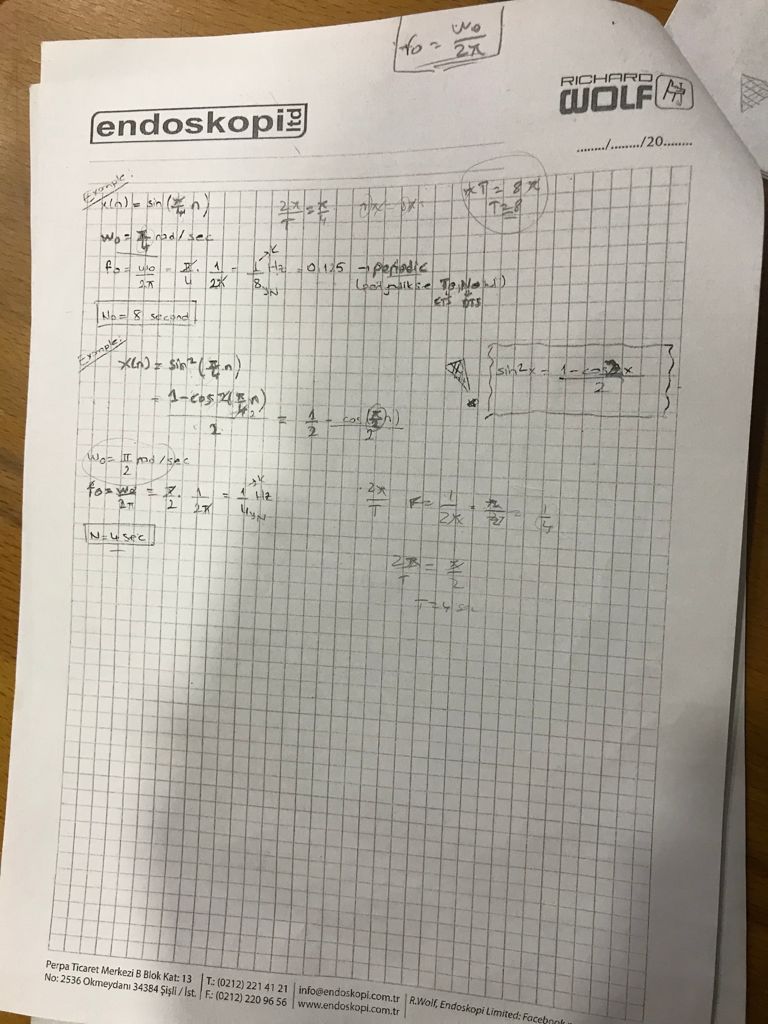 f0 = w0/2π
RICHARD
WOLF
endoskopi ltd
......../......../20........
Example:
x(n) = sin(π/4 n)
2π/T = π/4
πT = 8π
T = 8
w0 = π/4 rad/sec
f0 = w0/2π = π/4 . 1/2π = 1/8 Hz = 0,125 → periodic
→K
→N
T0, N0
CTS DTS
N0 = 8 second
Example:
x(n) = sin²(π/4 n)
sin²x = 1-cos2x/2
= 1-cos2(π/4 n)/2 = 1/2 - cos(π/2 n)/2
w0 = π/2 rad/sec
f0 = w0/2π = π/2 . 1/2π = 1/4 Hz
→K
→N
2π/T
= 1/2π . π/2 = 1/4
N = 4 sec
2π/T = π/2
T = 4 s
Perpa Ticaret Merkezi B Blok Kat: 13
No: 2536 Okmeydanı 34384 Şişli / İst.
T.: (0212) 221 41 21
F.: (0212) 220 96 56
info@endoskopi.com.tr
www.endoskopi.com.tr
R.Wolf, Endoskopi Limited: Facebook